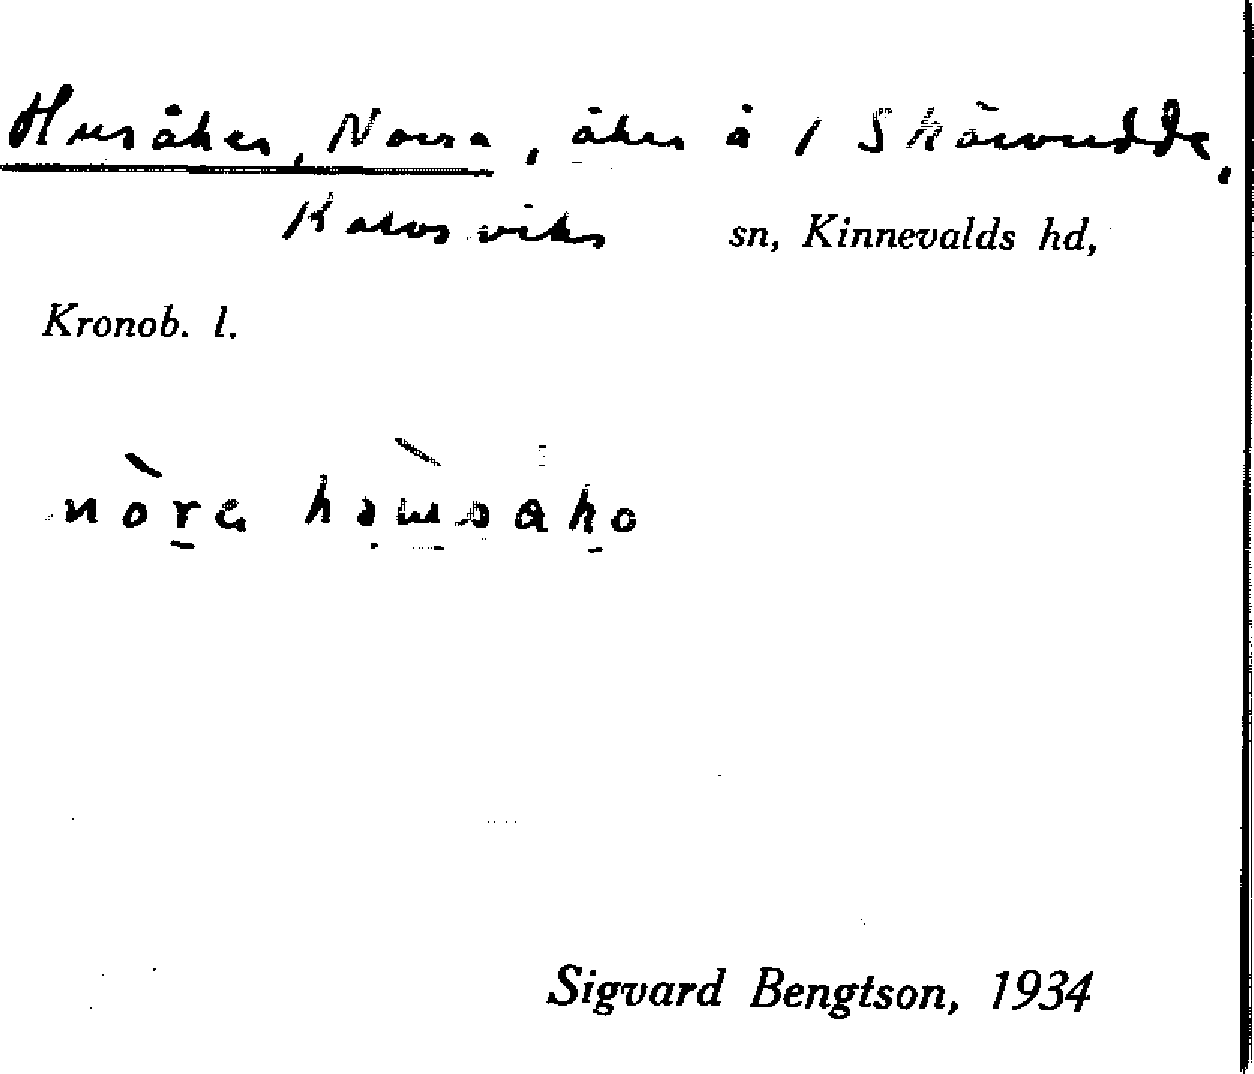 Husåker, Norra, åker å 1 Skäroudde,
Kalvsviks sn, Kinnevalds hd,
Kronob. l.
Sigvard Bengtson, 1934